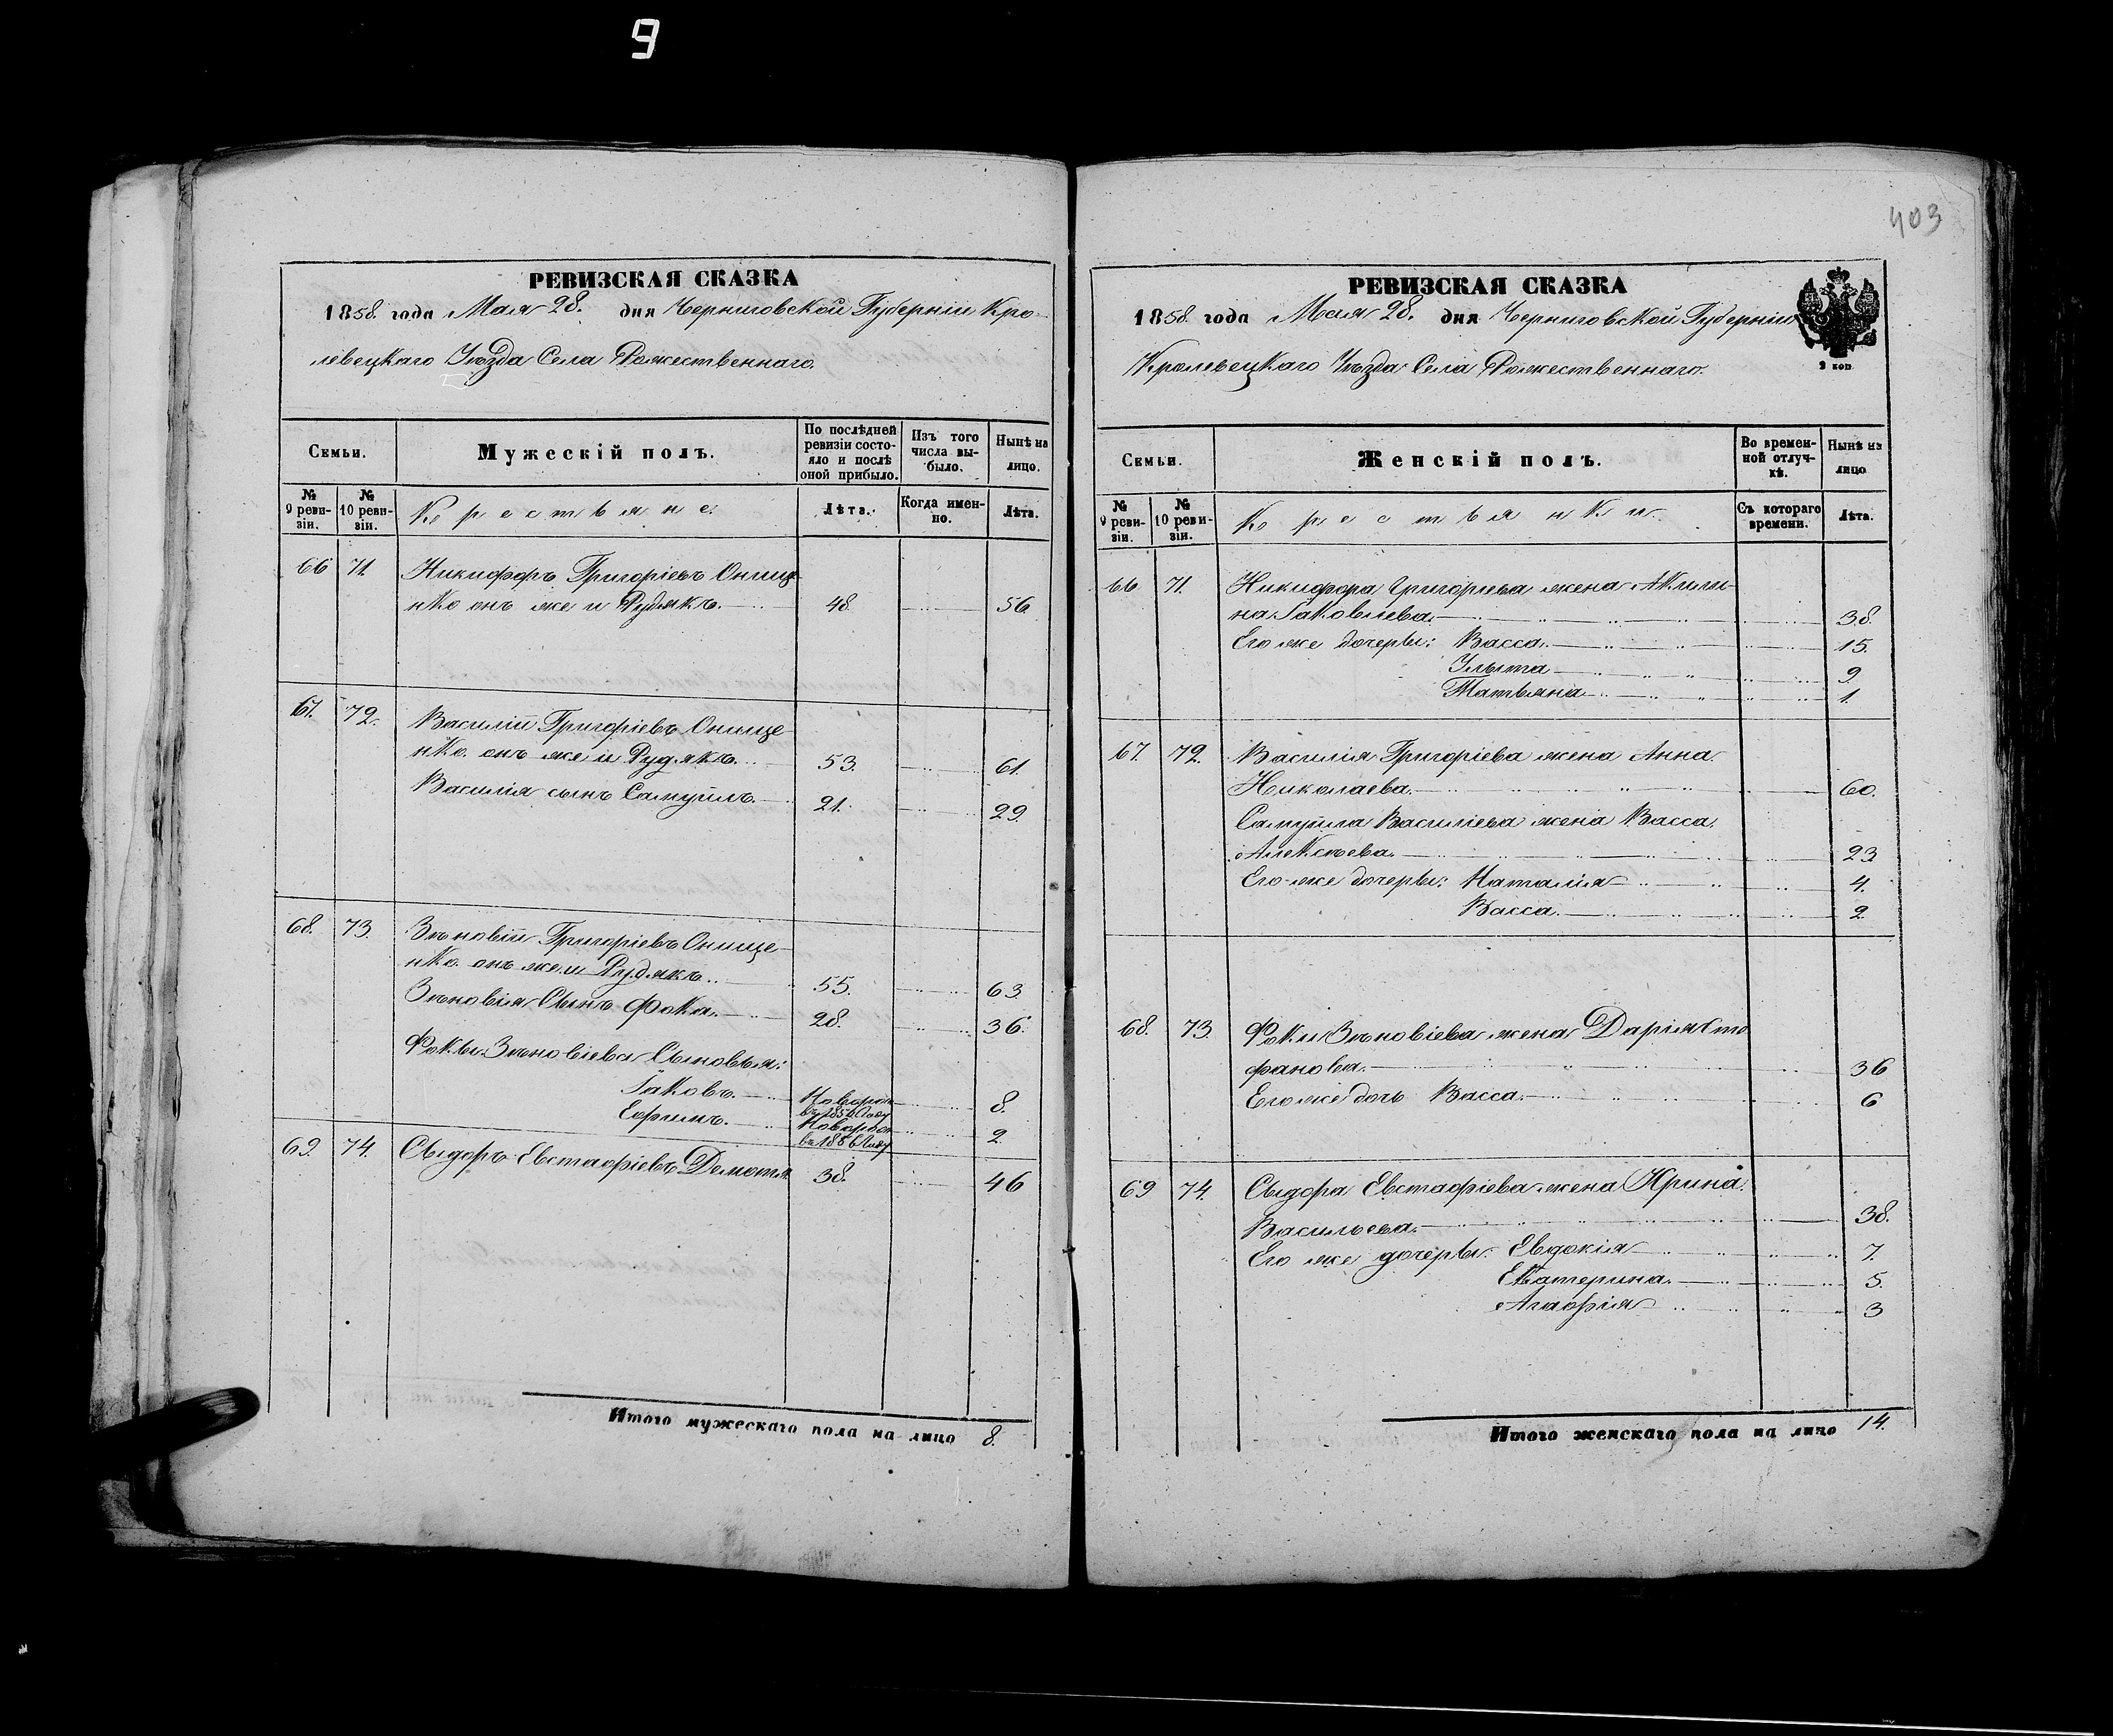 9
403
РЕВИЗСКАЯ СКАЗКА
1858. года Мая 28. дня Черниговской Губерніи Кро-
левецкаго Уѣзда Села Рожественнаго.
Семьи.
Мужескій полъ.
По послѣдней ревизіи состояло и послѣ оной прибыло.
Изъ того числа выбыло.
Нынѣ на лицо.
№ 9 ревизіи.
№ 10 ревизіи.
Крестьяне.
Лѣта.
Когда именно.
Лѣта.
66 71. Никифоръ Григоріевъ Онище-
нко онъ же и Рудякъ. 48. 56
67. 72. Василій Григоріевъ Онище
нко онъ же и Рудякъ. 53. 61.
Василія сынъ Самуйлъ. 21. 29.
68. 73. Зѣновій Григоріевъ Онище-
нко онъ же и Рудякъ. 55. 63.
Зѣновія Сынъ Фока. 28. 36.
Фокы Зѣновіева Сыновья:
Іаковъ. Новорож 8.
Ефимъ. Новорож 2
въ 1856 Году
69. 74. Сыдоръ Евстафіевъ 38. 46
Итого мужескаго пола на лицо 8.
РЕВИЗСКАЯ СКАЗКА
1858. года Мая 28. дня Черниговской Губерніи
Кролевецкаго Уѣзда Села Рожественнаго.
2 коп
Семьи.
Женскій полъ.
Во временной отлучкѣ.
Нынѣ на лицо
№ 9 ревизіи.
№ 10 ревизіи.
Крестьянки.
Съ котораго времени.
Лѣта.
66 71. Никифора Григорьева жена Акили-
на Іаковлева. 38.
Его же дочеры: Васса. 15.
Улыта 9
Татьяна 1.
67. 72. Василія Григоріева жена Анна
Николаева. 60.
Самуйла Василіева жена Васса
Алексѣева. 23
Его же дочеры: Наталія 4.
Васса. 2
68. 73. Фоки Зѣновіева жена Дарія Сте
фанова. 36
Его же дочь Васса. 6
69 74. Сыдора Евстафіева жена Ирина
Васильева. 38.
Его же дочеры: Евдокія 7.
Екатерина. 5.
Агафія 3
Итого женскаго пола на лицо 14.